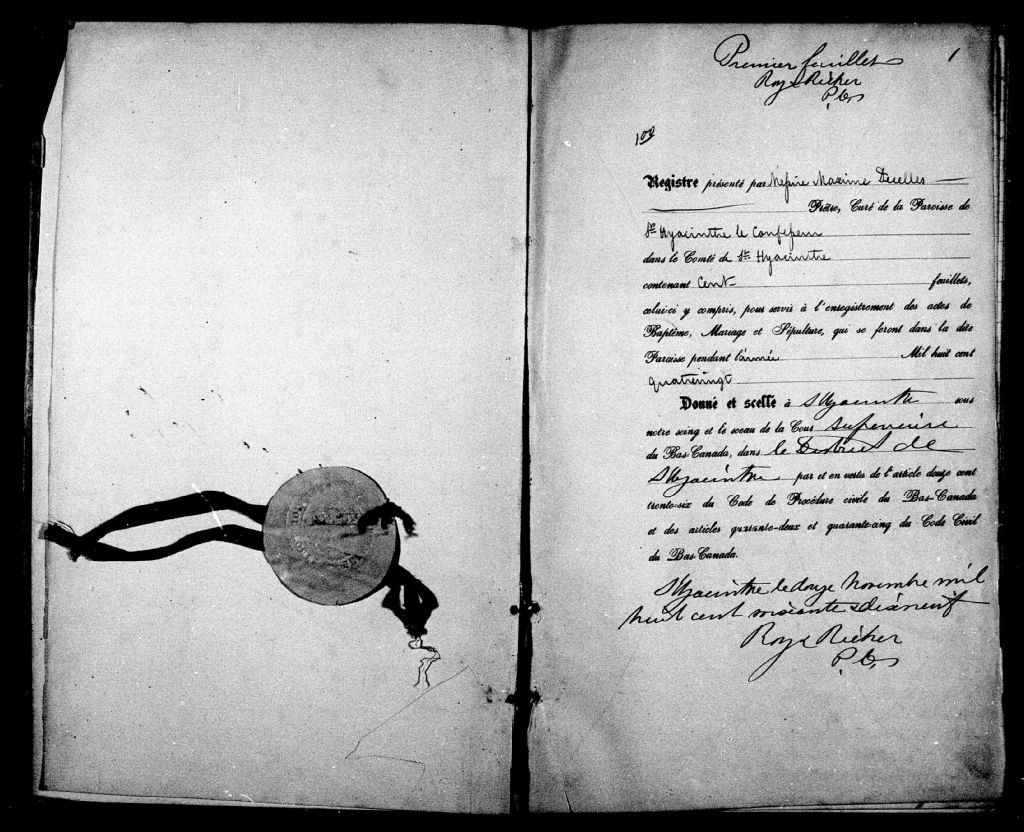 Premier feuillet 1
Roy & Richer
P. C. S.
100
Registre présenté par Messire Maxime Decelles
Prêtre, Curé de la Paroisse de
St. Hyacinthe le Confesseur
dans le Comté de St. Hyacinthe
contenant Cent feuillets,
celui-ci y compris, pour servir à l'enregistrement des actes de
Baptême, Mariage et Sépulture, qui se feront dans la dite
Paroisse pendant l'année Mil huit cent
quatrevingt
Donné et scellé à St Hyacinthe sous
notre seing et le sceau de la Cour supérieure
du Bas-Canada, dans le District de
St Hyacinthe par et en vertu de l'article douze cent
trente-six du Code de Procédure civile du Bas-Canada
et des articles quarante-deux et quarante-cinq du Code Civil
du Bas-Canada.
St Hyacinthe le douze Novembre mil
huit cent soixante & dixneuf
Roy & Richer
P. C. S.